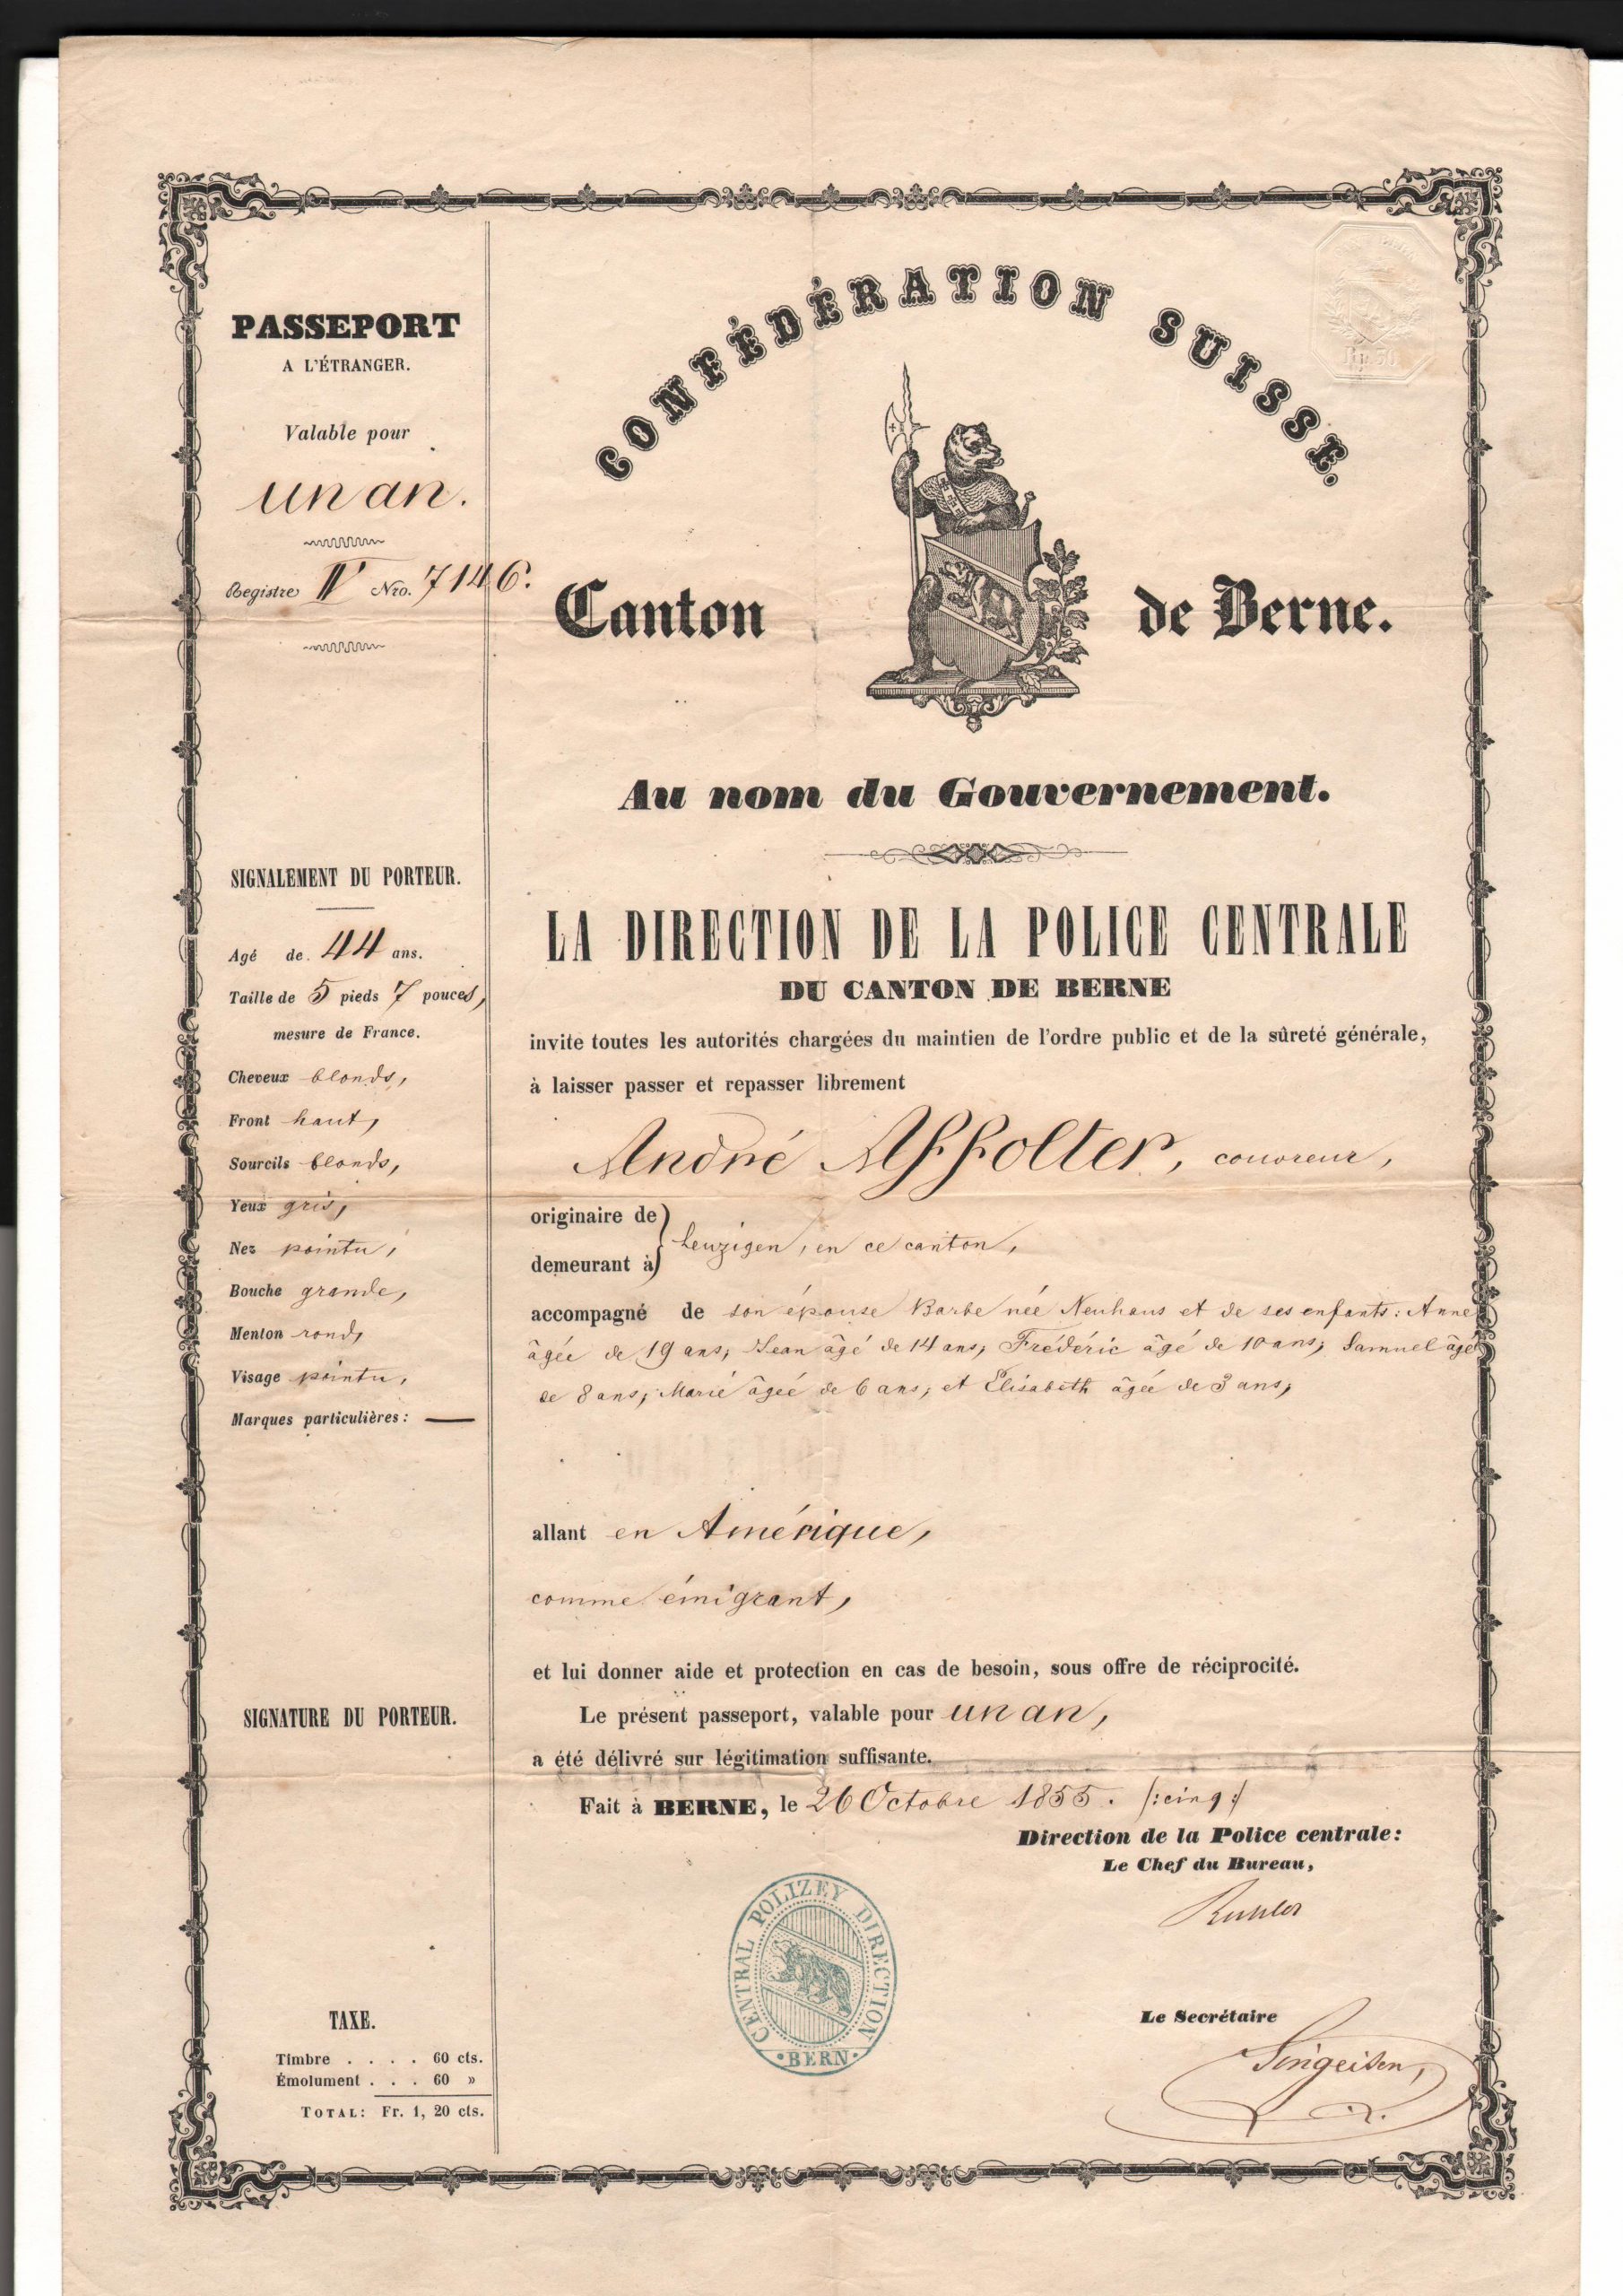 PASSEPORT
A L'ÉTRANGER.
Valable pour
un an.
Registre IV Nro. 7146.
SIGNALEMENT DU PORTEUR.
Agé de 44 ans.
Taille de 5 pieds 7 pouces,
mesure de France.
Cheveux blonds,
Front haut,
Sourcils blonds,
Yeux gris,
Nez pointu,
Bouche grande,
Menton rond,
Visage pointu,
Marques particulières: —
SIGNATURE DU PORTEUR.
TAXE.
Timbre . . . . 60 cts.
Émolument . . . 60 »
TOTAL: Fr. 1, 20 cts.
CONFÉDÉRATION SUISSE.
Rp 30
Canton de Berne.
Au nom du Gouvernement.
LA DIRECTION DE LA POLICE CENTRALE
DU CANTON DE BERNE
invite toutes les autorités chargées du maintien de l'ordre public et de la sûreté générale,
à laisser passer et repasser librement
André Affolter, couvreur,
originaire de
demeurant à
Leuzigen, en ce canton,
accompagné de son épouse Barbe née Neuhaus et de ses enfants: Anne
âgée de 19 ans; Jean âgé de 14 ans; Frédéric âgé de 10 ans; Samuel âgé
de 8 ans; Marie âgée de 6 ans; et Élisabeth âgée de 3 ans;
allant en Amérique,
comme émigrant,
et lui donner aide et protection en cas de besoin, sous offre de réciprocité.
Le présent passeport, valable pour un an,
a été délivré sur légitimation suffisante.
Fait à BERNE, le 26 Octobre 1855. /:cinq:/
Direction de la Police centrale:
Le Chef du Bureau,
CENTRAL POLIZEY DIRECTION
BERN
Le Secrétaire
Singeisen,